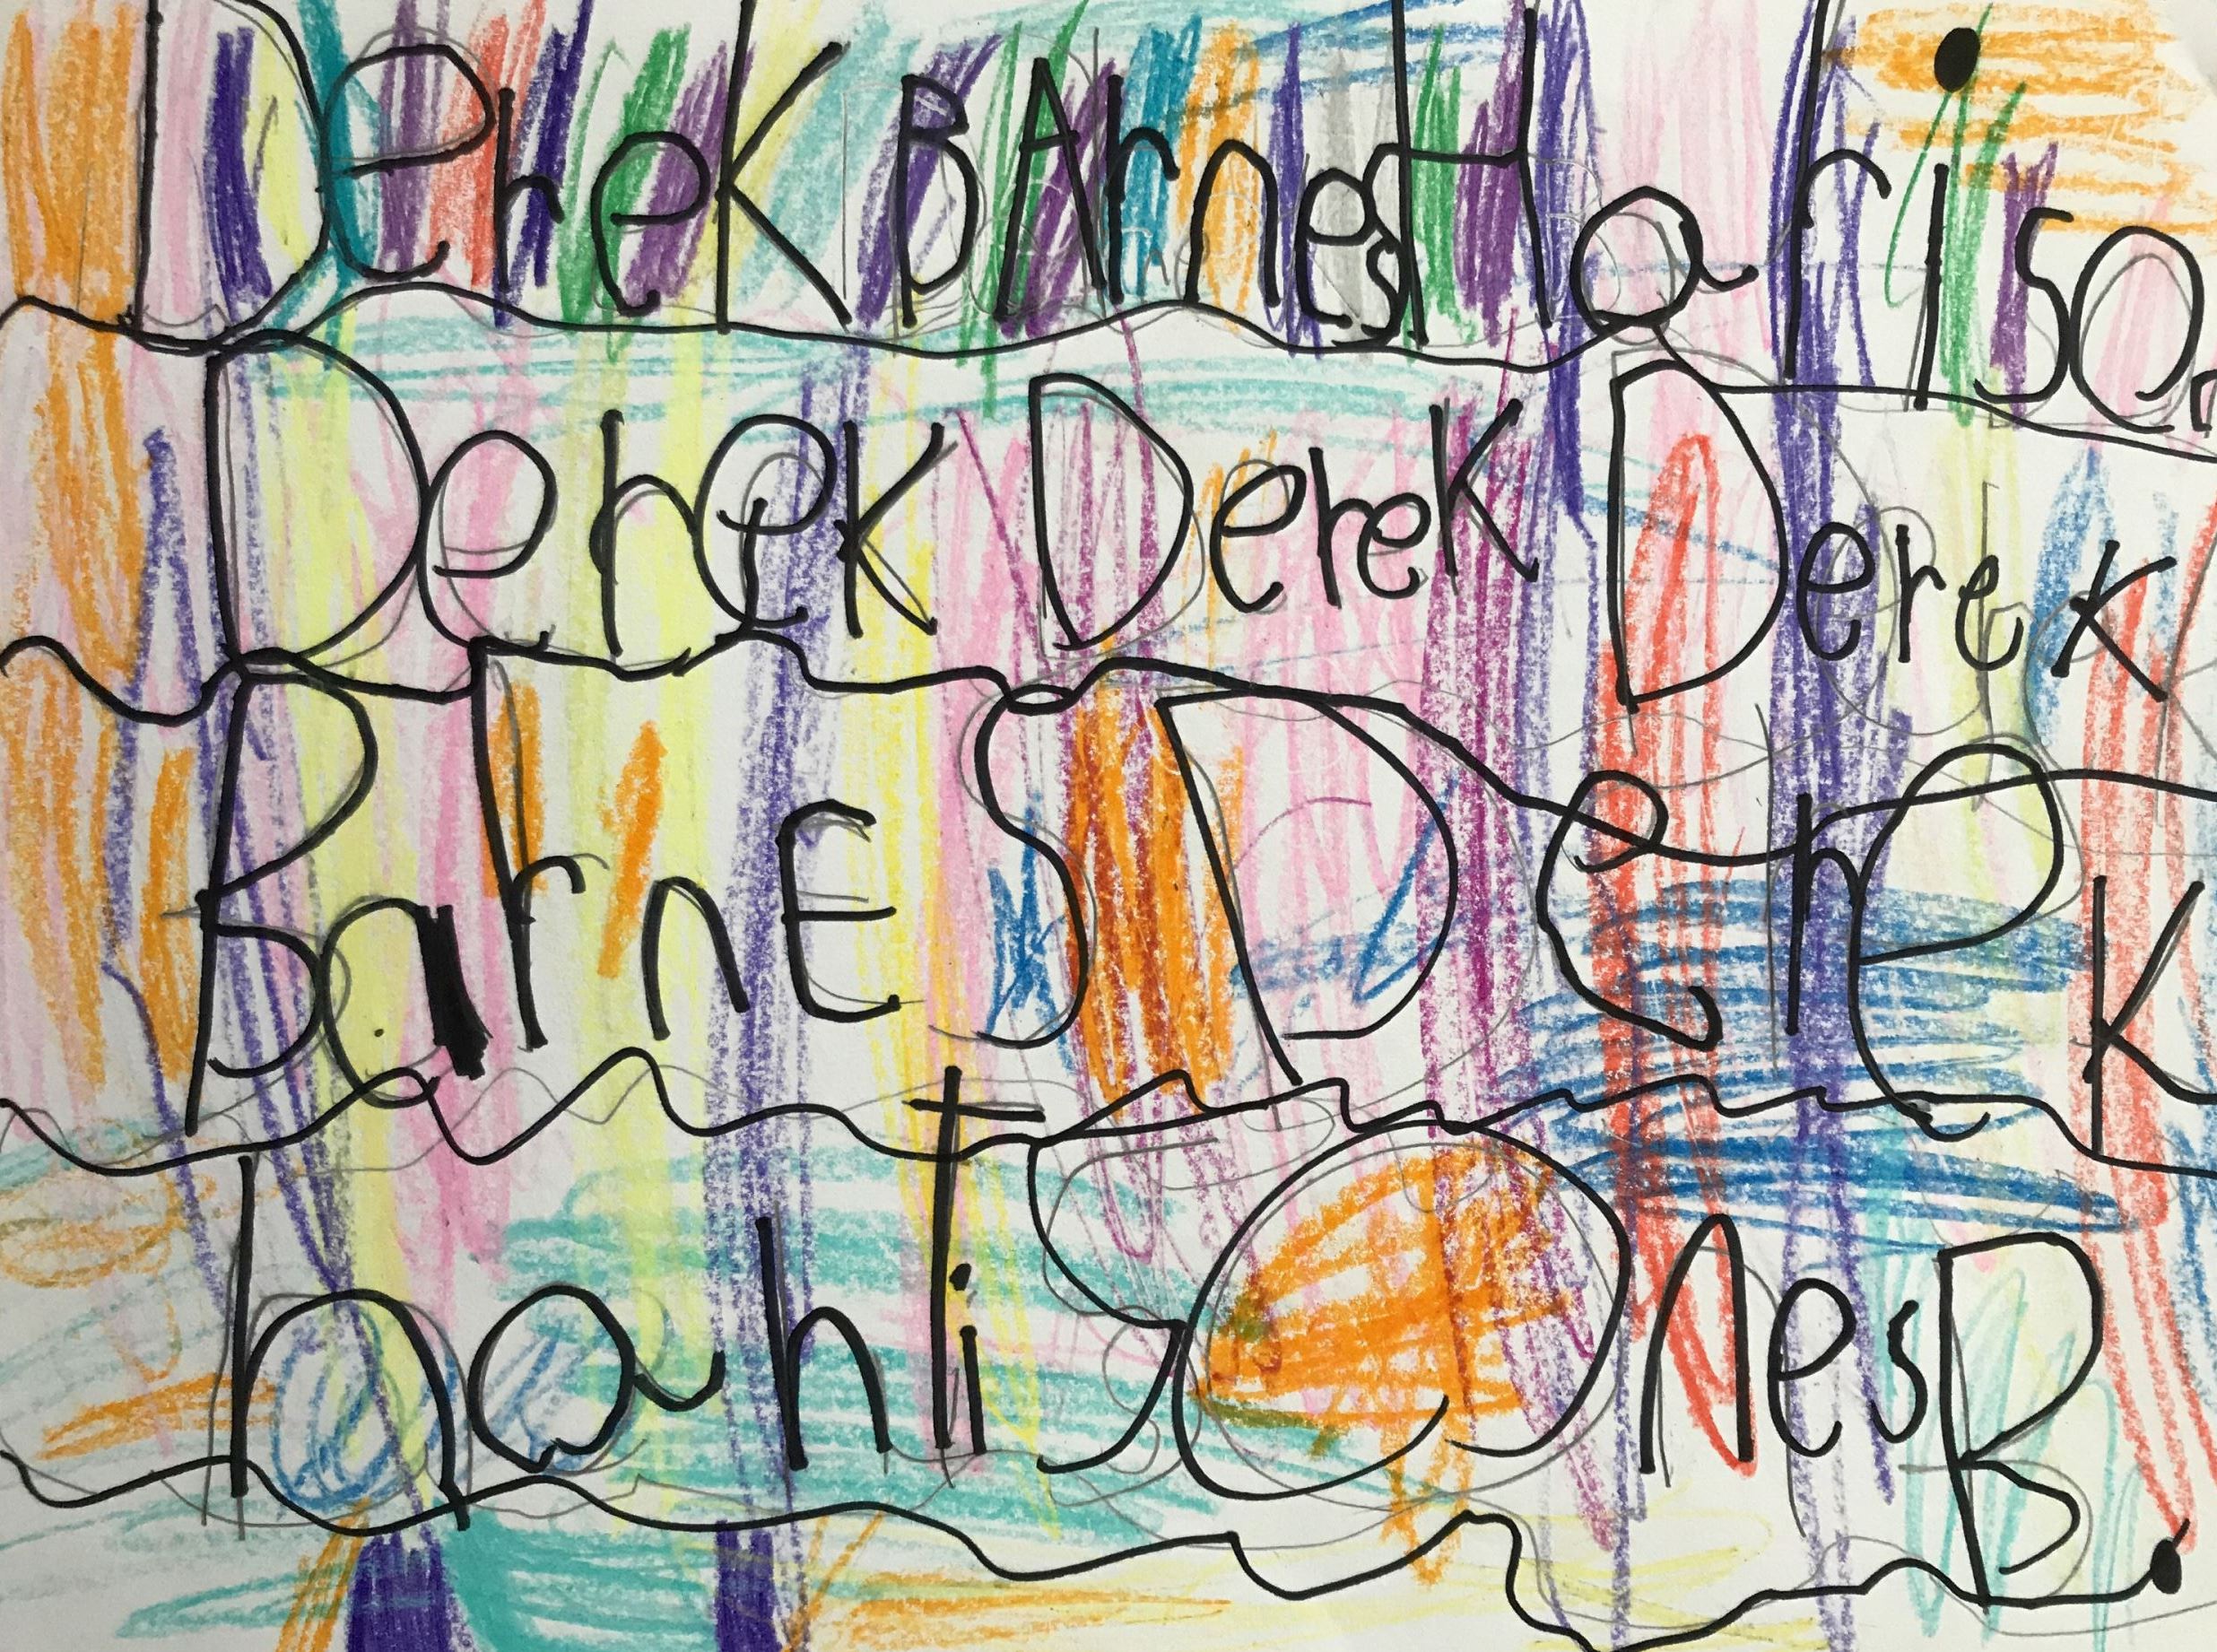 DereK BArnes Harison
DereK DereK DereK
BarnES DereK
hartis ones B.